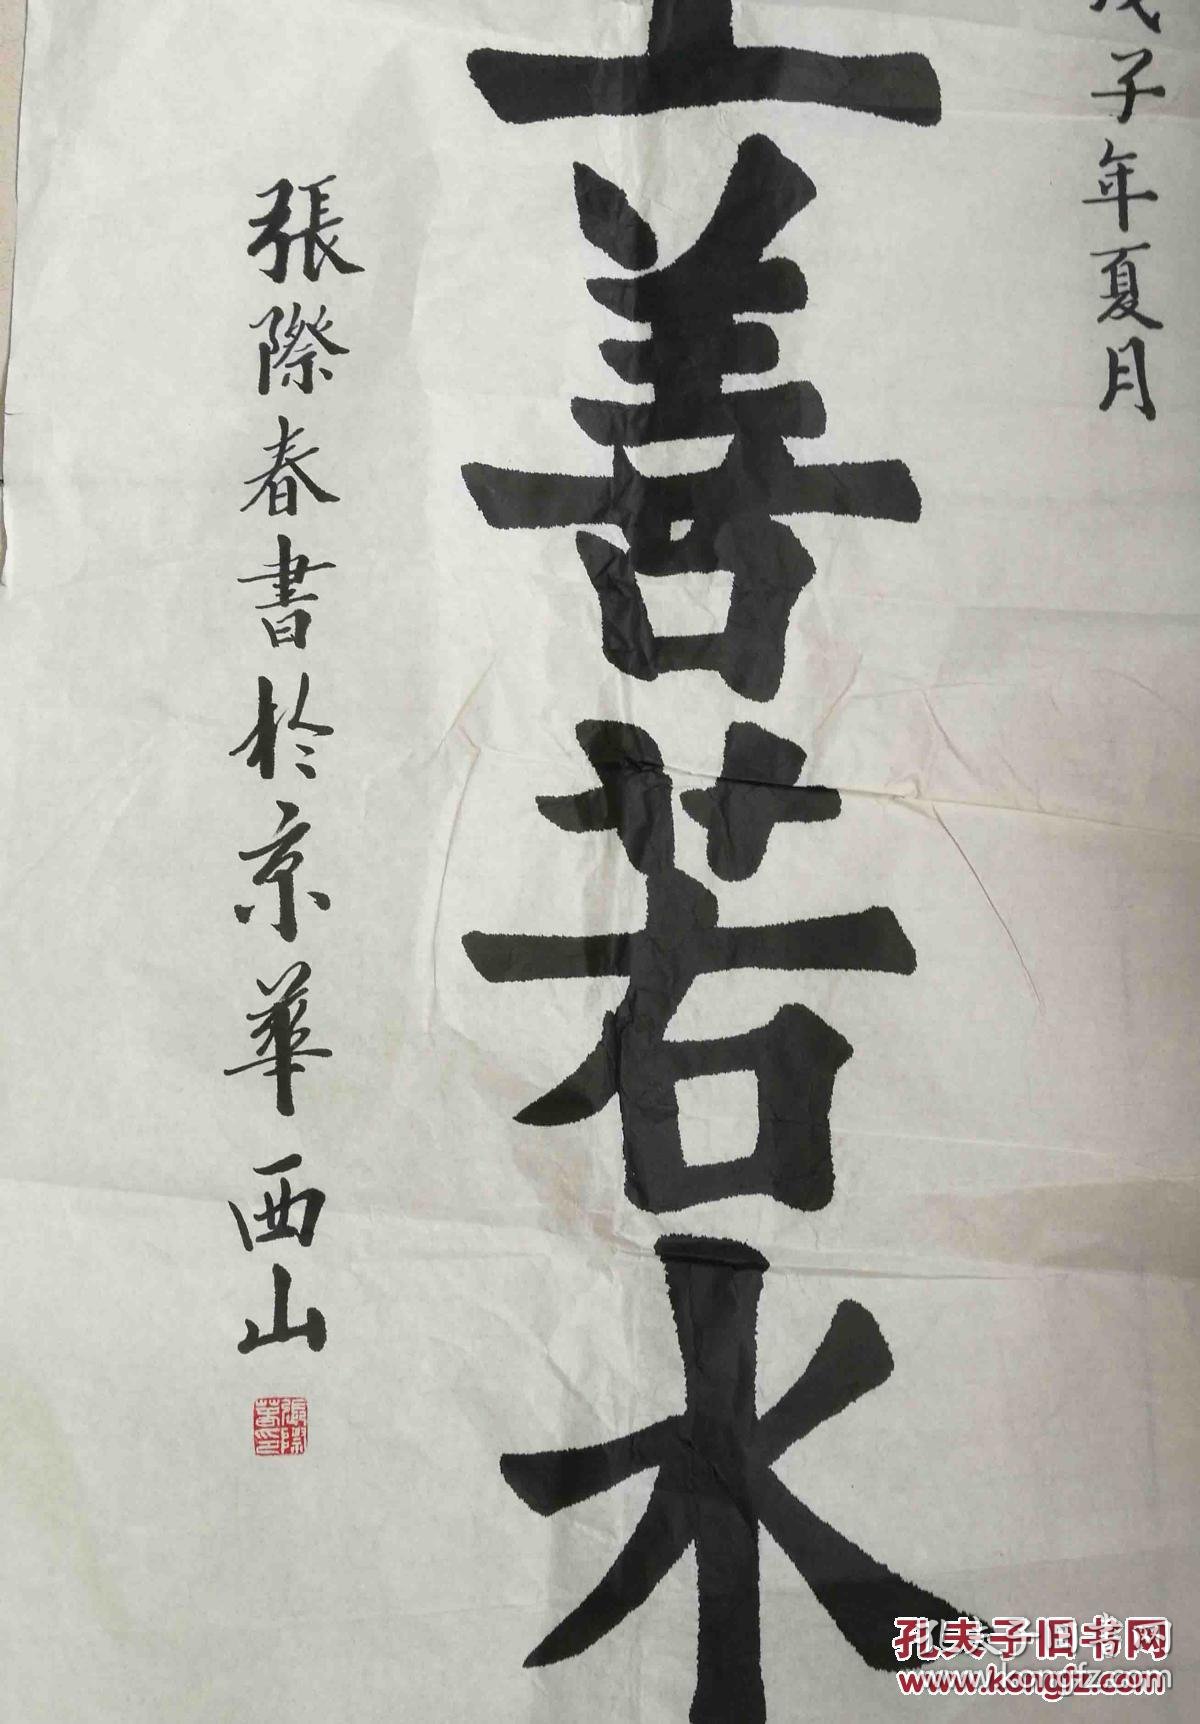 戊子年夏月
上善若水
張際春書於京華西山
張際春印
孔夫子旧书网
www.kongfz.com